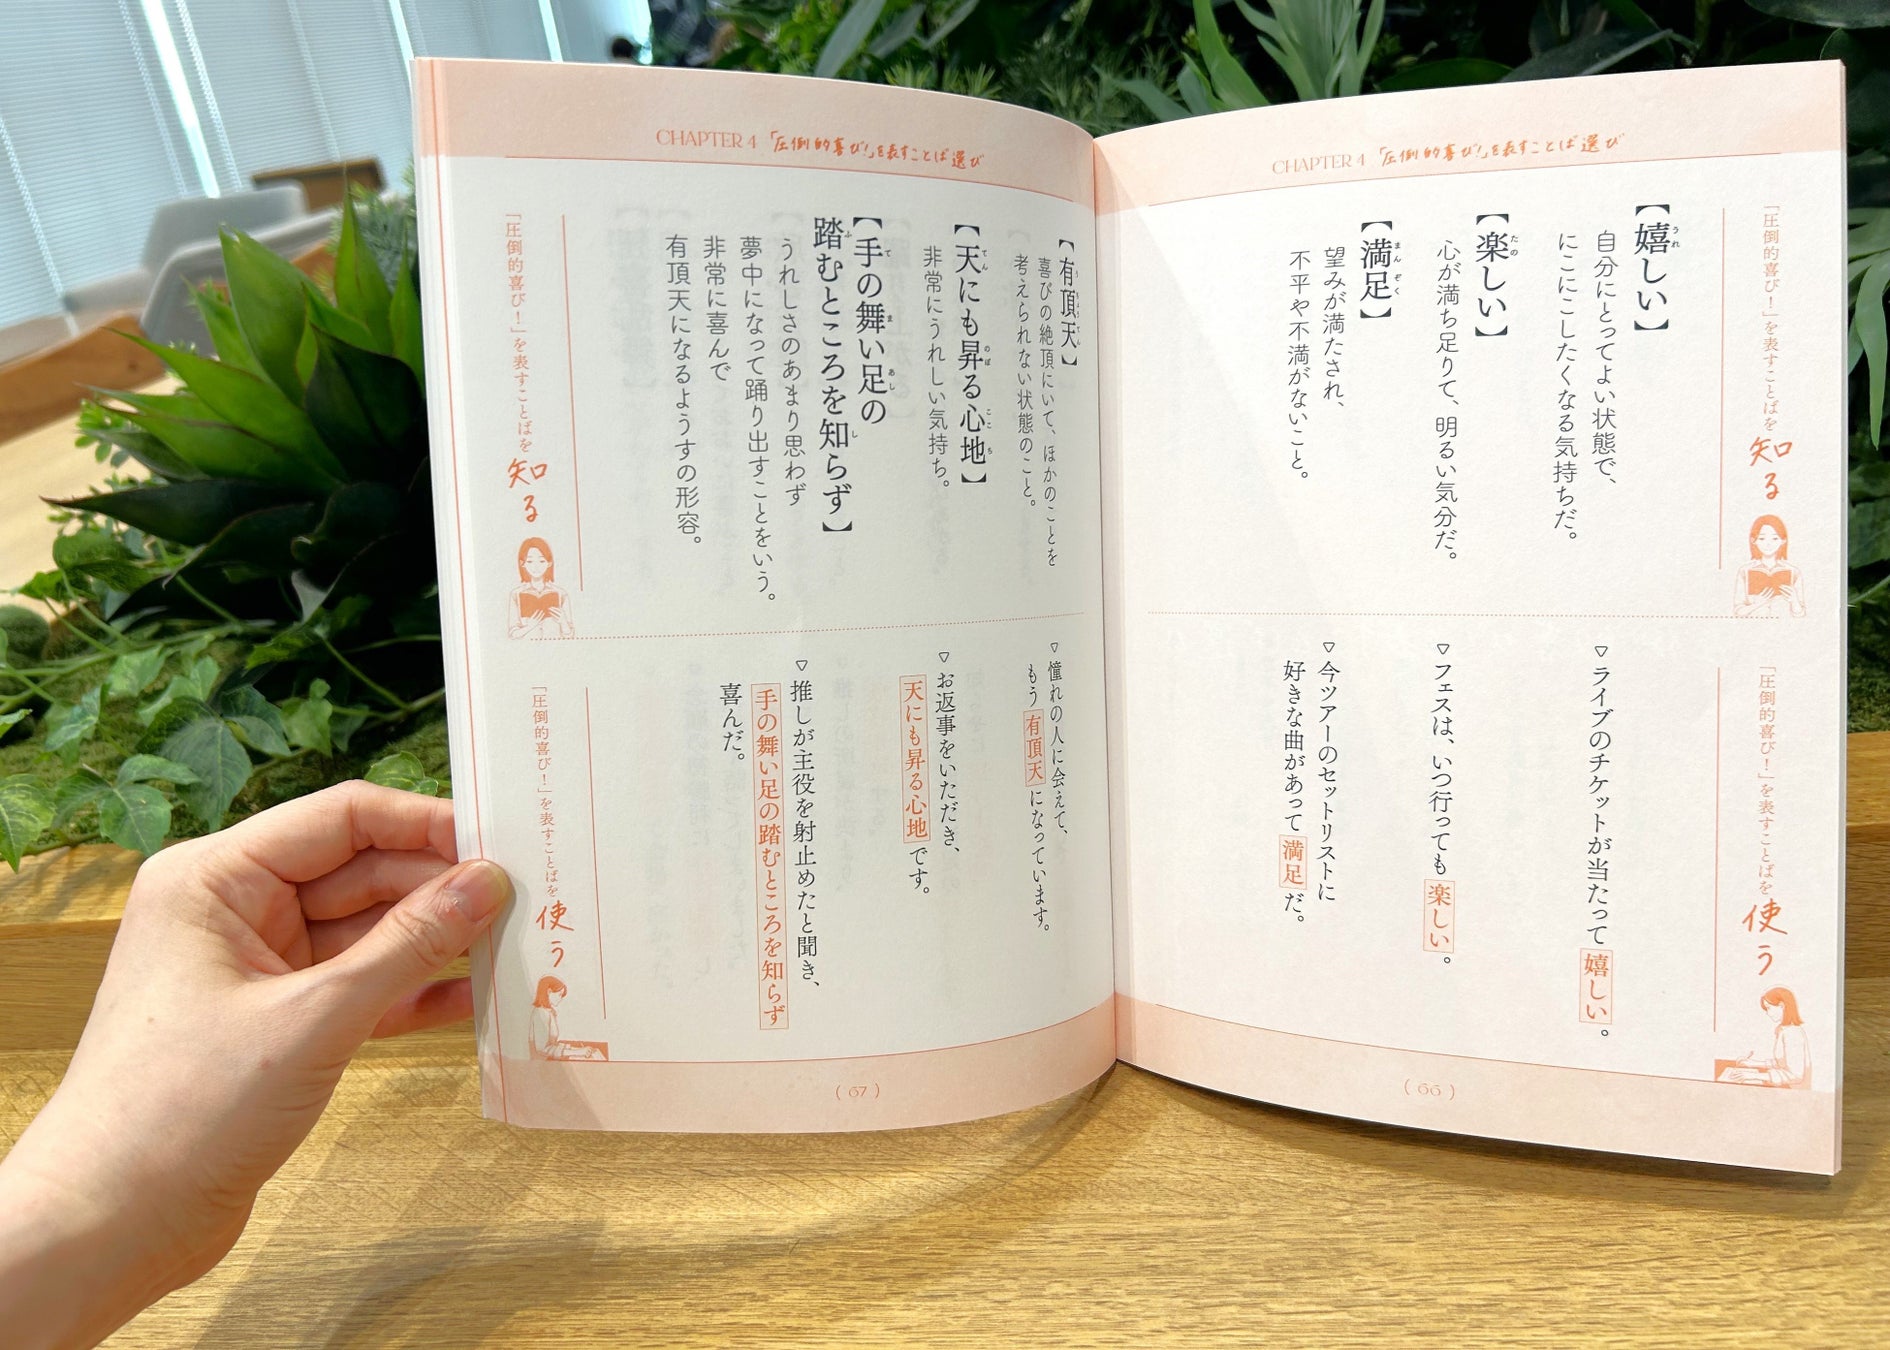 CHAPTER 4 「圧倒的喜び!」を表すことば選び
「圧倒的喜び!」を表すことばを
知る
【嬉しい】
自分にとってよい状態で、
にこにこしたくなる気持ちだ。
【楽しい】
心が満ち足りて、明るい気分だ。
【満足】
望みが満たされ、
不平や不満がないこと。
「圧倒的喜び!」を表すことばを
使う
▽ライブのチケットが当たって嬉しい。
▽フェスは、いつ行っても楽しい。
▽今ツアーのセットリストに
好きな曲があって満足だ。
(66)
CHAPTER 4 「圧倒的喜び!」を表すことば選び
【有頂天】
喜びの絶頂にいて、ほかのことを
考えられない状態のこと。
【天にも昇る心地】
非常にうれしい気持ち。
【手の舞い足の
踏むところを知らず】
うれしさのあまり思わず
夢中になって踊り出すことをいう。
非常に喜んで
有頂天になるようすの形容。
「圧倒的喜び!」を表すことばを
知る
▽憧れの人に会えて、
もう有頂天になっています。
▽お返事をいただき、
天にも昇る心地です。
▽推しが主役を射止めたと聞き、
手の舞い足の踏むところを知らず
喜んだ。
「圧倒的喜び!」を表すことばを
使う
(67)